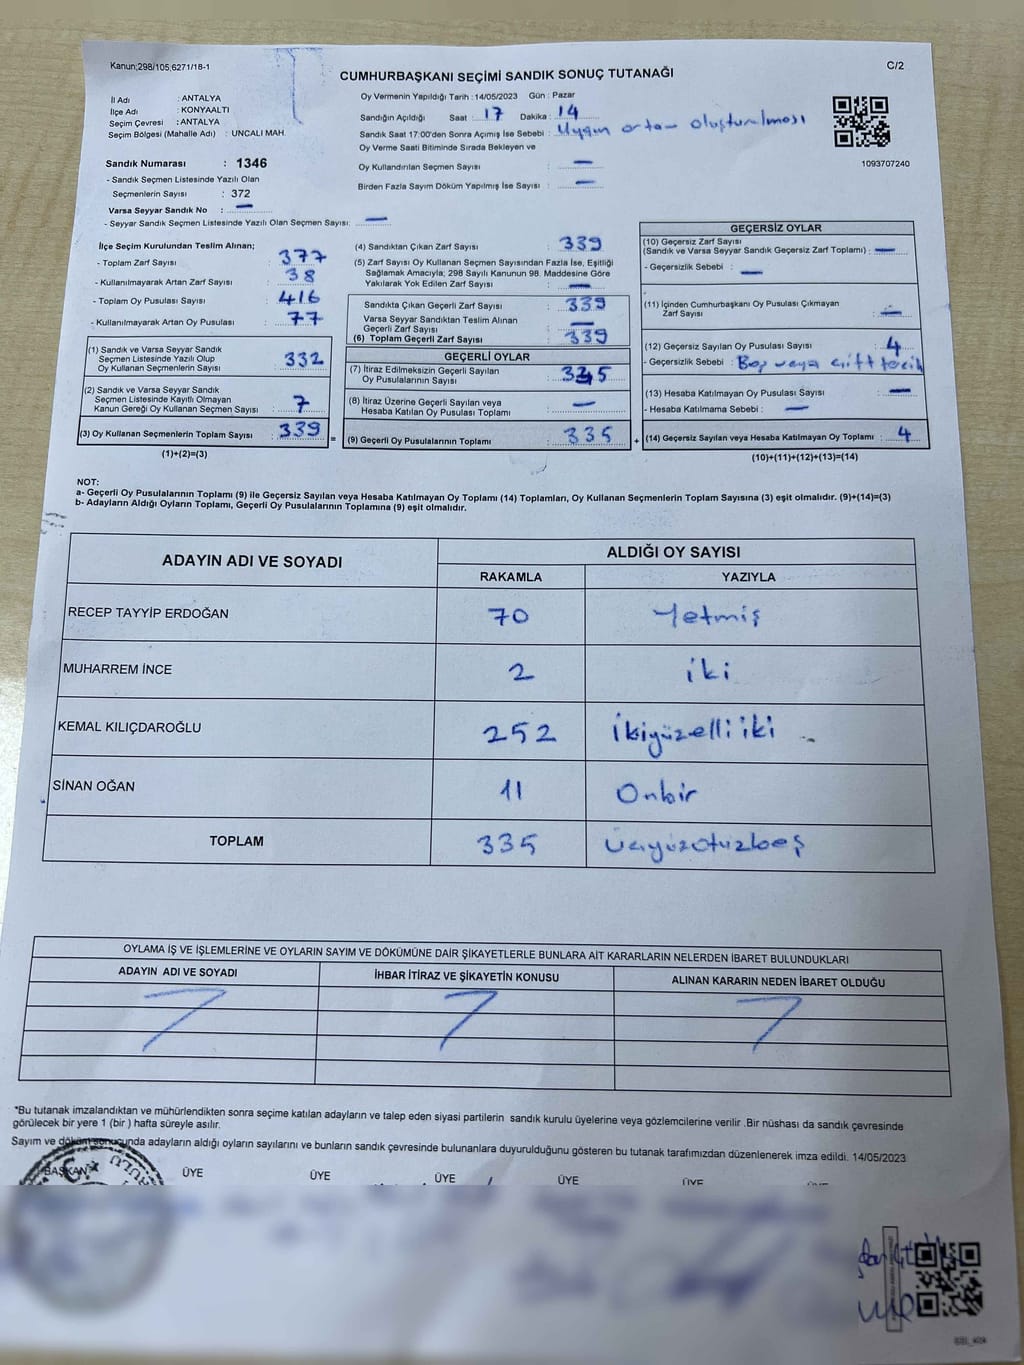 Kanun;298/105,6271/18-1
C/2
CUMHURBAŞKANI SEÇİMİ SANDIK SONUÇ TUTANAĞI
İl Adı : ANTALYA
İlçe Adı : KONYAALTI
Seçim Çevresi : ANTALYA
Seçim Bölgesi (Mahalle Adı) : UNCALI MAH.
Oy Vermenin Yapıldığı Tarih : 14/05/2023 Gün : Pazar
Sandığın Açıldığı Saat : 17 Dakika : 14
Sandık Saat 17:00'den Sonra Açımış İse Sebebi : Uygun ortam oluşturulması
Oy Verme Saati Bitiminde Sırada Bekleyen ve
Oy Kullandırılan Seçmen Sayısı : —
Birden Fazla Sayım Döküm Yapılmış İse Sayısı : —
1093707240
Sandık Numarası : 1346
- Sandık Seçmen Listesinde Yazılı Olan
Seçmenlerin Sayısı : 372
Varsa Seyyar Sandık No : —
- Seyyar Sandık Seçmen Listesinde Yazılı Olan Seçmen Sayısı: —
İlçe Seçim Kurulundan Teslim Alınan;
- Toplam Zarf Sayısı : 377
- Kullanılmayarak Artan Zarf Sayısı : 38
- Toplam Oy Pusulası Sayısı : 416
- Kullanılmayarak Artan Oy Pusulası : 77
(1) Sandık ve Varsa Seyyar Sandık
Seçmen Listesinde Yazılı Olup
Oy Kullanan Seçmenlerin Sayısı : 332
(2) Sandık ve Varsa Seyyar Sandık
Seçmen Listesinde Kayıtlı Olmayan
Kanun Gereği Oy Kullanan Seçmen Sayısı : 7
(3) Oy Kullanan Seçmenlerin Toplam Sayısı : 339
(1)+(2)=(3)
=
(4) Sandıktan Çıkan Zarf Sayısı : 339
(5) Zarf Sayısı Oy Kullanan Seçmen Sayısından Fazla İse, Eşitliği
Sağlamak Amacıyla; 298 Sayılı Kanunun 98. Maddesine Göre
Yakılarak Yok Edilen Zarf Sayısı : —
Sandıkta Çıkan Geçerli Zarf Sayısı : 339
Varsa Seyyar Sandıktan Teslim Alınan
Geçerli Zarf Sayısı : —
(6) Toplam Geçerli Zarf Sayısı : 339
GEÇERLİ OYLAR
(7) İtiraz Edilmeksizin Geçerli Sayılan
Oy Pusulalarının Sayısı : 335
(8) İtiraz Üzerine Geçerli Sayılan veya
Hesaba Katılan Oy Pusulası Toplamı : —
(9) Geçerli Oy Pusulalarının Toplamı : 335
+
GEÇERSİZ OYLAR
(10) Geçersiz Zarf Sayısı
(Sandık ve Varsa Seyyar Sandık Geçersiz Zarf Toplamı) : —
- Geçersizlik Sebebi : —
(11) İçinden Cumhurbaşkanı Oy Pusulası Çıkmayan
Zarf Sayısı : —
(12) Geçersiz Sayılan Oy Pusulası Sayısı : 4
- Geçersizlik Sebebi : Boş veya çift tercih
(13) Hesaba Katılmayan Oy Pusulası Sayısı : —
- Hesaba Katılmama Sebebi : —
(14) Geçersiz Sayılan veya Hesaba Katılmayan Oy Toplamı : 4
(10)+(11)+(12)+(13)=(14)
NOT:
a- Geçerli Oy Pusulalarının Toplamı (9) ile Geçersiz Sayılan veya Hesaba Katılmayan Oy Toplamı (14) Toplamları, Oy Kullanan Seçmenlerin Toplam Sayısına (3) eşit olmalıdır. (9)+(14)=(3)
b- Adayların Aldığı Oyların Toplamı, Geçerli Oy Pusulalarının Toplamına (9) eşit olmalıdır.
ADAYIN ADI VE SOYADI ALDIĞI OY SAYISI
RAKAMLA YAZIYLA
RECEP TAYYİP ERDOĞAN 70 Yetmiş
MUHARREM İNCE 2 iki
KEMAL KILIÇDAROĞLU 252 İkiyüzelliiki
SİNAN OĞAN 11 Onbir
TOPLAM 335 Üçyüzotuzbeş
OYLAMA İŞ VE İŞLEMLERİNE VE OYLARIN SAYIM VE DÖKÜMÜNE DAİR ŞİKAYETLERLE BUNLARA AİT KARARLARIN NELERDEN İBARET BULUNDUKLARI
ADAYIN ADI VE SOYADI İHBAR İTİRAZ VE ŞİKAYETİN KONUSU ALINAN KARARIN NEDEN İBARET OLDUĞU
*Bu tutanak imzalandıktan ve mühürlendikten sonra seçime katılan adayların ve talep eden siyasi partilerin sandık kurulu üyelerine veya gözlemcilerine verilir .Bir nüshası da sandık çevresinde
görülecek bir yere 1 (bir ) hafta süreyle asılır.
Sayım ve döküm sonucunda adayların aldığı oyların sayılarını ve bunların sandık çevresinde bulunanlara duyurulduğunu gösteren bu tutanak tarafımızdan düzenlenerek imza edildi. 14/05/2023
BAŞKAN ÜYE ÜYE ÜYE ÜYE ÜYE